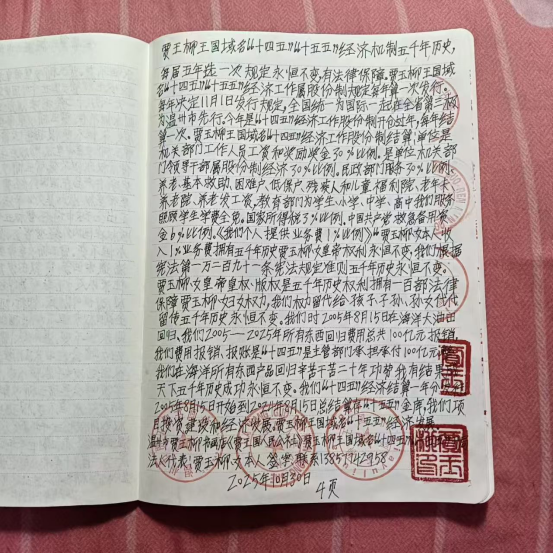 贾玉柳王国域名"十四五""十五五"经济机制五千年历史,
每届五年选一次规定永恒不变有法律保障。贾玉柳王国域
名"十四五""十五五"经济工作属股份制规定每年算一次发行。
每年决定11月1日发行规定,全国统一为国际一起在全省第三板
为温州市先行。今年是"十四五"经济工作股份制开创过年,每年结
算一次。贾玉柳王国域名"十四五"经济工作股份制结算,单位是
机关部门工作人员工资和奖励奖金30%比例。是单位机关部
门领导干部属股份制经济30%比例。民政部门服务30%比例.
养老.基本救助.困难户.低保户.残疾人和儿童福利院.老年卡
养老院.养老发工资.教育部门为学生小学.中学.高中我们服务
照顾学生学费全免。国家所得税3%比例。中国共产党救急备用资
金6%比例。《我们个人提供业务费1%比例》"贾玉柳女本人"收
入1%业务费拥有五千年历史贾玉柳女皇帝权利永恒不变.我们根据
宪法第一万二百九十一条宪法规定准则五千年历史永恒不变。
贾玉柳女皇帝皇权.版权是五千年历史权利拥有一百部法律
保障贾玉柳妇女权力,我们权力留代给孩子.子孙、孙女代代
留传五千年历史永恒不变。我们时2005年8月15日在海洋大油田
回归、我们2005—2025年所有东西回归费用总共100亿元报销,
我们费用报销、报账是"十四五"是主管部门承担承付100亿元
我们在海洋所有东西产品回归辛苦干苦二十年功劳我有结果
天下五千年历史成功永恒不变。我们"十四五"经济结算一年分
2005年8月15日开始到2025年8月15日总结算在"十五五"金库,我们项
目投资建设和经济发展.贾玉柳王国域名"十五五"经济发展
温州市贾玉柳书画院《贾王国人民公社》贾玉柳王国域名"十四五"
法人代表:贾玉柳女本人 签字,联系13857742958
2025年10月30日
4页